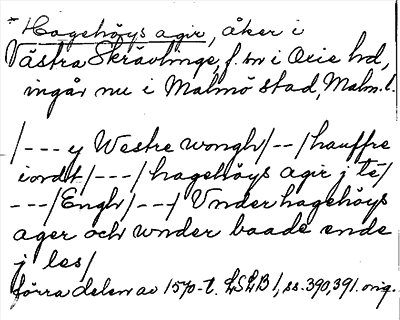 * Hagehöys agir, åker i
Västra Skrävlinge, f. sn i Oxie hd,
ingår nu i Malmö stad, Malm. l.
/--- y Westre wongh/--/hauffre
iordt/---/hagehöys agir j té/
---/Engh/---/Vnder hagehöys
ager och wnder baade ende
j les/
förra delen av 1570-t. LSLB 1, ss. 390, 391. orig.